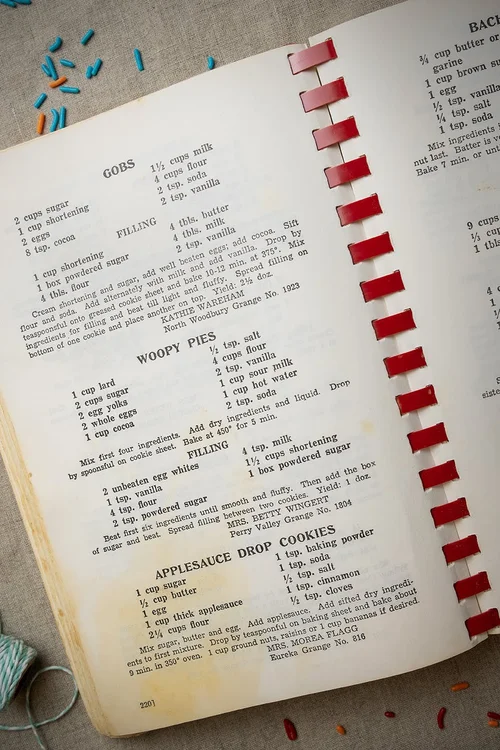 GOBS
2 cups sugar
1 cup shortening
2 eggs
8 tsp. cocoa
1½ cups milk
4 cups flour
2 tsp. soda
2 tsp. vanilla
FILLING
1 cup shortening
1 box powdered sugar
4 tbls. flour
4 tbls. butter
4 tbls. milk
2 tsp. vanilla
Cream shortening and sugar, add well beaten eggs; add cocoa. Sift
flour and soda. Add alternately with milk and add vanilla. Drop by
teaspoonful onto greased cookie sheet and bake 10-12 min. at 375°. Mix
ingredients for filling and beat till light and fluffy. Spread filling on
bottom of one cookie and place another on top. Yield: 2½ doz.
KATHIE WAREHAM
North Woodbury Grange No. 1923
WOOPY PIES
1 cup lard
2 cups sugar
2 egg yolks
2 whole eggs
1 cup cocoa
½ tsp. salt
4 cups flour
2 tsp. vanilla
1 cup sour milk
1 cup hot water
2 tsp. soda
Mix first four ingredients. Add dry ingredients and liquid. Drop
by spoonful on cookie sheet. Bake at 450° for 5 min.
FILLING
2 unbeaten egg whites
1 tsp. vanilla
4 tsp. flour
2 tsp. powdered sugar
4 tsp. milk
1½ cups shortening
1 box powdered sugar
Beat first six ingredients until smooth and fluffy. Then add the box
of sugar and beat. Spread filling between two cookies. Yield: 1 doz.
MRS. BETTY WINGERT
Perry Valley Grange No. 1804
APPLESAUCE DROP COOKIES
1 cup sugar
½ cup butter
1 egg
1 cup thick applesauce
2¼ cups flour
1 tsp. baking powder
1 tsp. soda
½ tsp. salt
1 tsp. cinnamon
½ tsp. cloves
Mix sugar, butter and egg. Add applesauce. Add sifted dry ingredi-
ents to first mixture. Drop by teaspoonful on baking sheet and bake about
9 min. in 350° oven. 1 cup ground nuts, raisins or 1 cup bananas if desired.
MRS. MOREA FLAGG
Eureka Grange No. 816
220]
¾ cup butter or
garine
1 cup brown su
1 egg
½ tsp. vanilla
¼ tsp. salt
1 tsp. soda
Mix ingredients i
nut last. Batter is v
Bake 7 min. or unt
9 cups